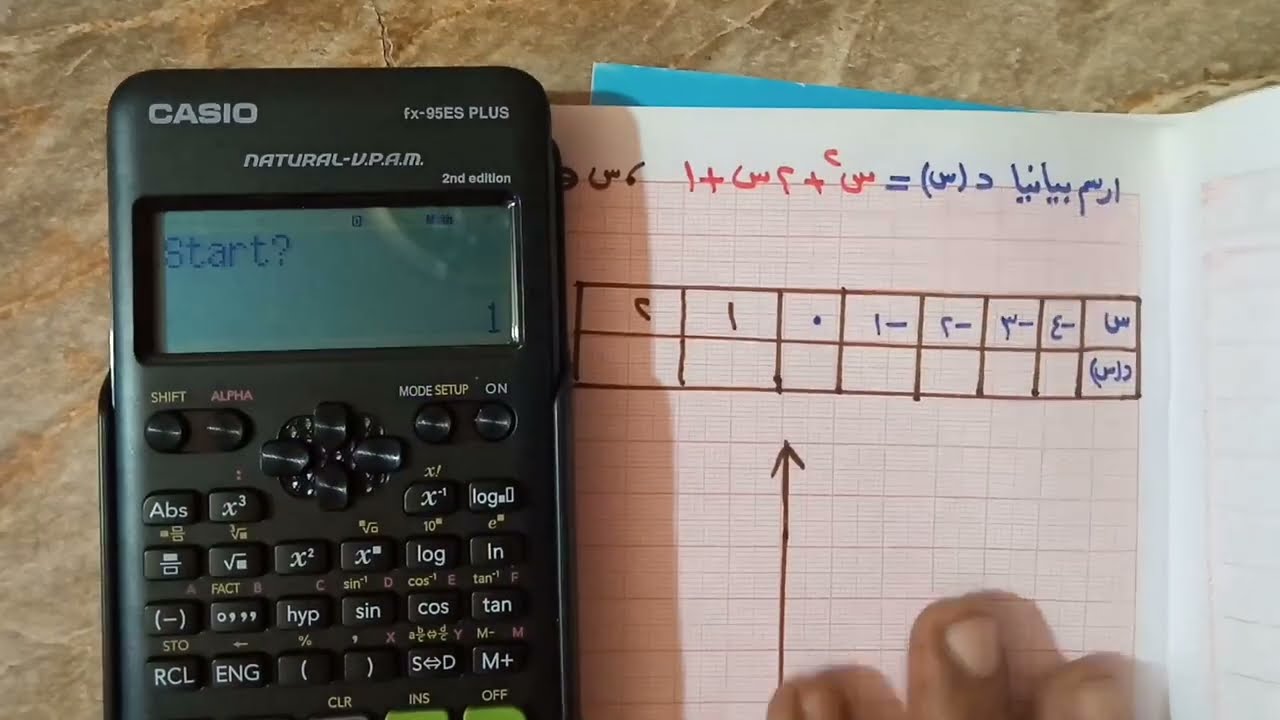 CASIO fx-95ES PLUS
NATURAL-V.P.A.M.
2nd edition
D Math
Start?
1
SHIFT ALPHA MODE SETUP ON
: x!
Abs x³ x⁻¹ log
³√ 10 eˣ
√ x² xˣ log ln
A FACT B C sin⁻¹ D cos⁻¹ E tan⁻¹ F
(−) °,,, hyp sin cos tan
STO ← % , X Y M- M
RCL ENG ( ) S⇔D M+
CLR INS OFF
ارسم بيانيا د (س) = س٢ + ٢س + ١ ، س
س -٤ -٣ -٢ -١ ٠ ١ ٢
د(س)